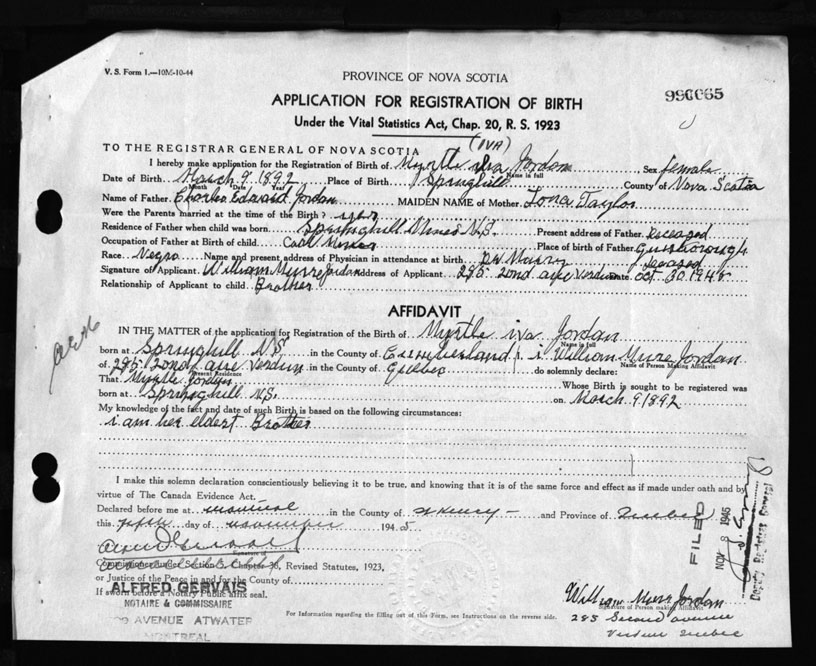 V. S. Form 1.—10M-10-44
PROVINCE OF NOVA SCOTIA
996665
APPLICATION FOR REGISTRATION OF BIRTH
Under the Vital Statistics Act, Chap. 20, R. S. 1923
(IVA)
TO THE REGISTRAR GENERAL OF NOVA SCOTIA
I hereby make application for the Registration of Birth of Myrtle iva Jordan Sex female
Name in full
Date of Birth March 9 1892 Place of Birth Springhill County of Nova Scotia
Month Date Year
Name of Father Charles Edward Jordan MAIDEN NAME of Mother Iona Taylor
Were the Parents married at the time of the Birth? yes
Residence of Father when child was born Springhill Mines N.S. Present address of Father Deceased
Occupation of Father at Birth of child Coal Miner Place of birth of Father Guysborough
Race Negro Name and present address of Physician in attendance at birth Dr Murry Deceased
Signature of Applicant William Murre Jordan Address of Applicant 285 2ond ave Verdun Date oct 30 1945
Relationship of Applicant to child Brother
AFFIDAVIT
IN THE MATTER of the application for Registration of the Birth of Myrtle iva Jordan
Name in full
born at Springhill N.S in the County of Cumberland i William Mure Jordan
Name of Person Making Affidavit
of 285 2ond ave Verdun in the County of Quebec do solemnly declare:
Present Residence
That Myrtle Jordan Whose Birth is sought to be registered was
born at Springhill N.S. on March 9 1892
My knowledge of the fact and date of such Birth is based on the following circumstances:
i am her eldest Brother
I make this solemn declaration conscientiously believing it to be true, and knowing that it is of the same force and effect as if made under oath and by
virtue of The Canada Evidence Act.
Declared before me at Montreal in the County of and Province of Quebec
this fifth day of november 1945
Signature of
Commissioner under Section 3, Chapter 38, Revised Statutes, 1923,
or Justice of the Peace in and for the County of
If sworn before a Notary Public affix seal.
ALFRED GERVAIS
NOTAIRE & COMMISSAIRE
AVENUE ATWATER
MONTREAL
For Information regarding the filling out of this Form, see Instructions on the reverse side.
William Murr Jordan
Signature of Person making Affidavit
285 Second avenue
Verdun Quebec
FILED
NOV 8 1945
Deputy Registrar General